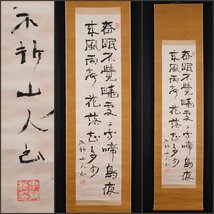 不折山人
春眠不覺曉處々聞啼鳥夜
來風雨声花落知多少
不折山人
春眠不覺曉處々聞啼鳥夜
來風雨声花落知多少
不折山人